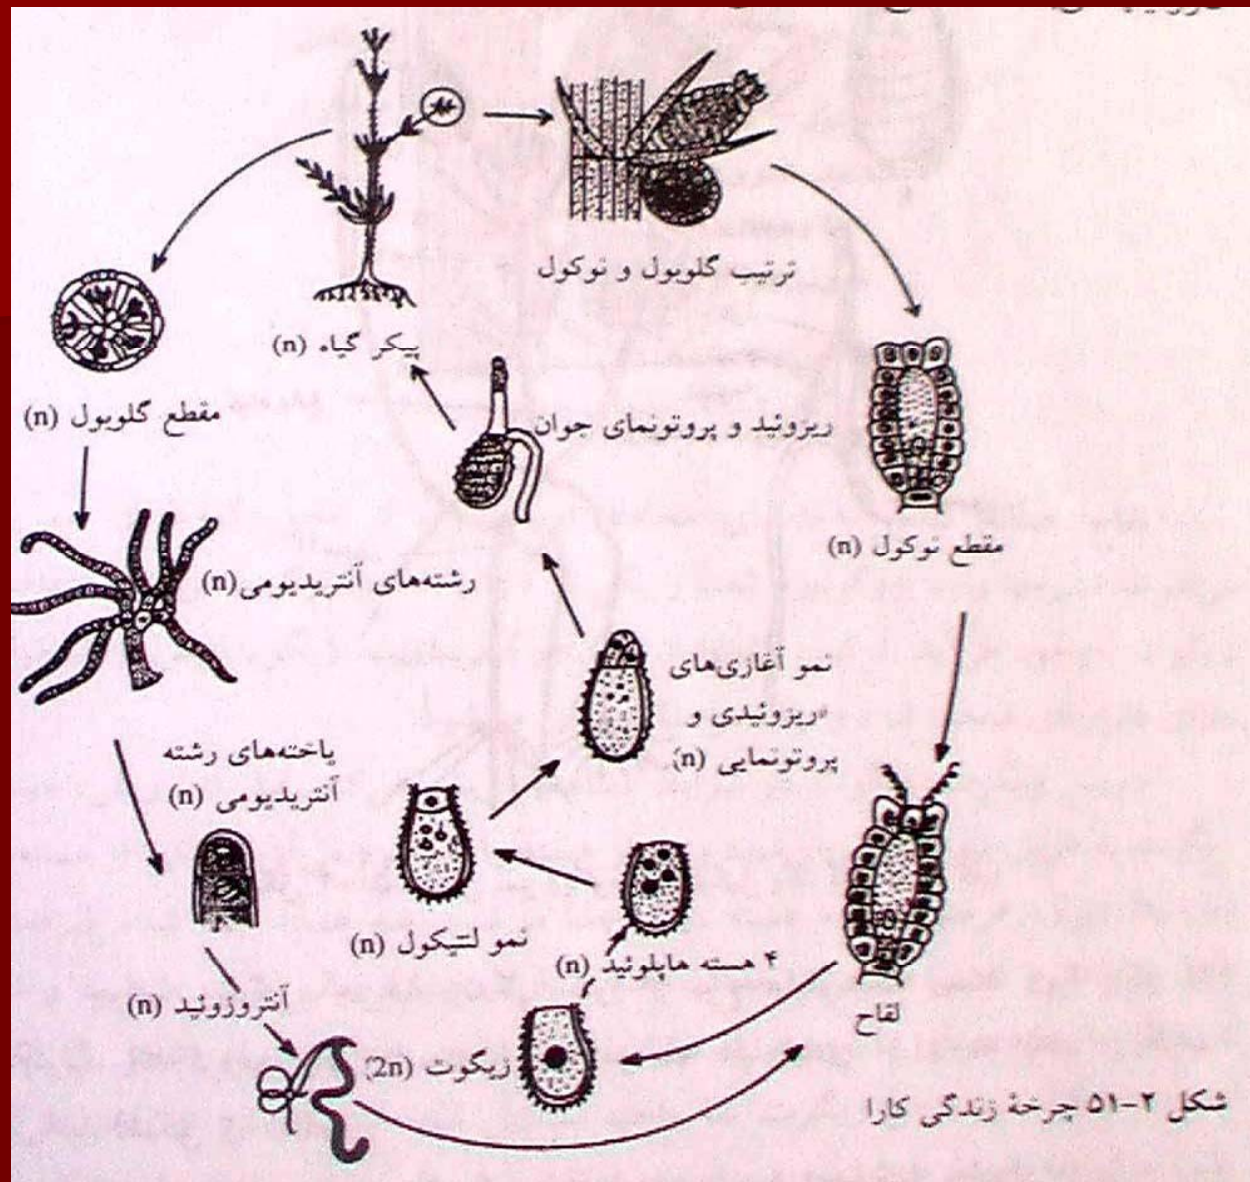 ترتیب گلوبول و نوکول
پیکر گیاه (n)
مقطع گلوبول (n)
ریزوئید و پروتونمای جوان
مقطع نوکول (n)
رشته‌های آنتریدیومی (n)
نمو آغازی‌های
ریزوئیدی و
پروتونمایی (n)
یاخته‌های رشته
آنتریدیومی (n)
نمو لنتیکول (n)
۴ هسته هاپلوئید (n)
آنتروزوئید (n)
لقاح
زیگوت (2n)
شکل ۲-۵۱ چرخهٔ زندگی کارا